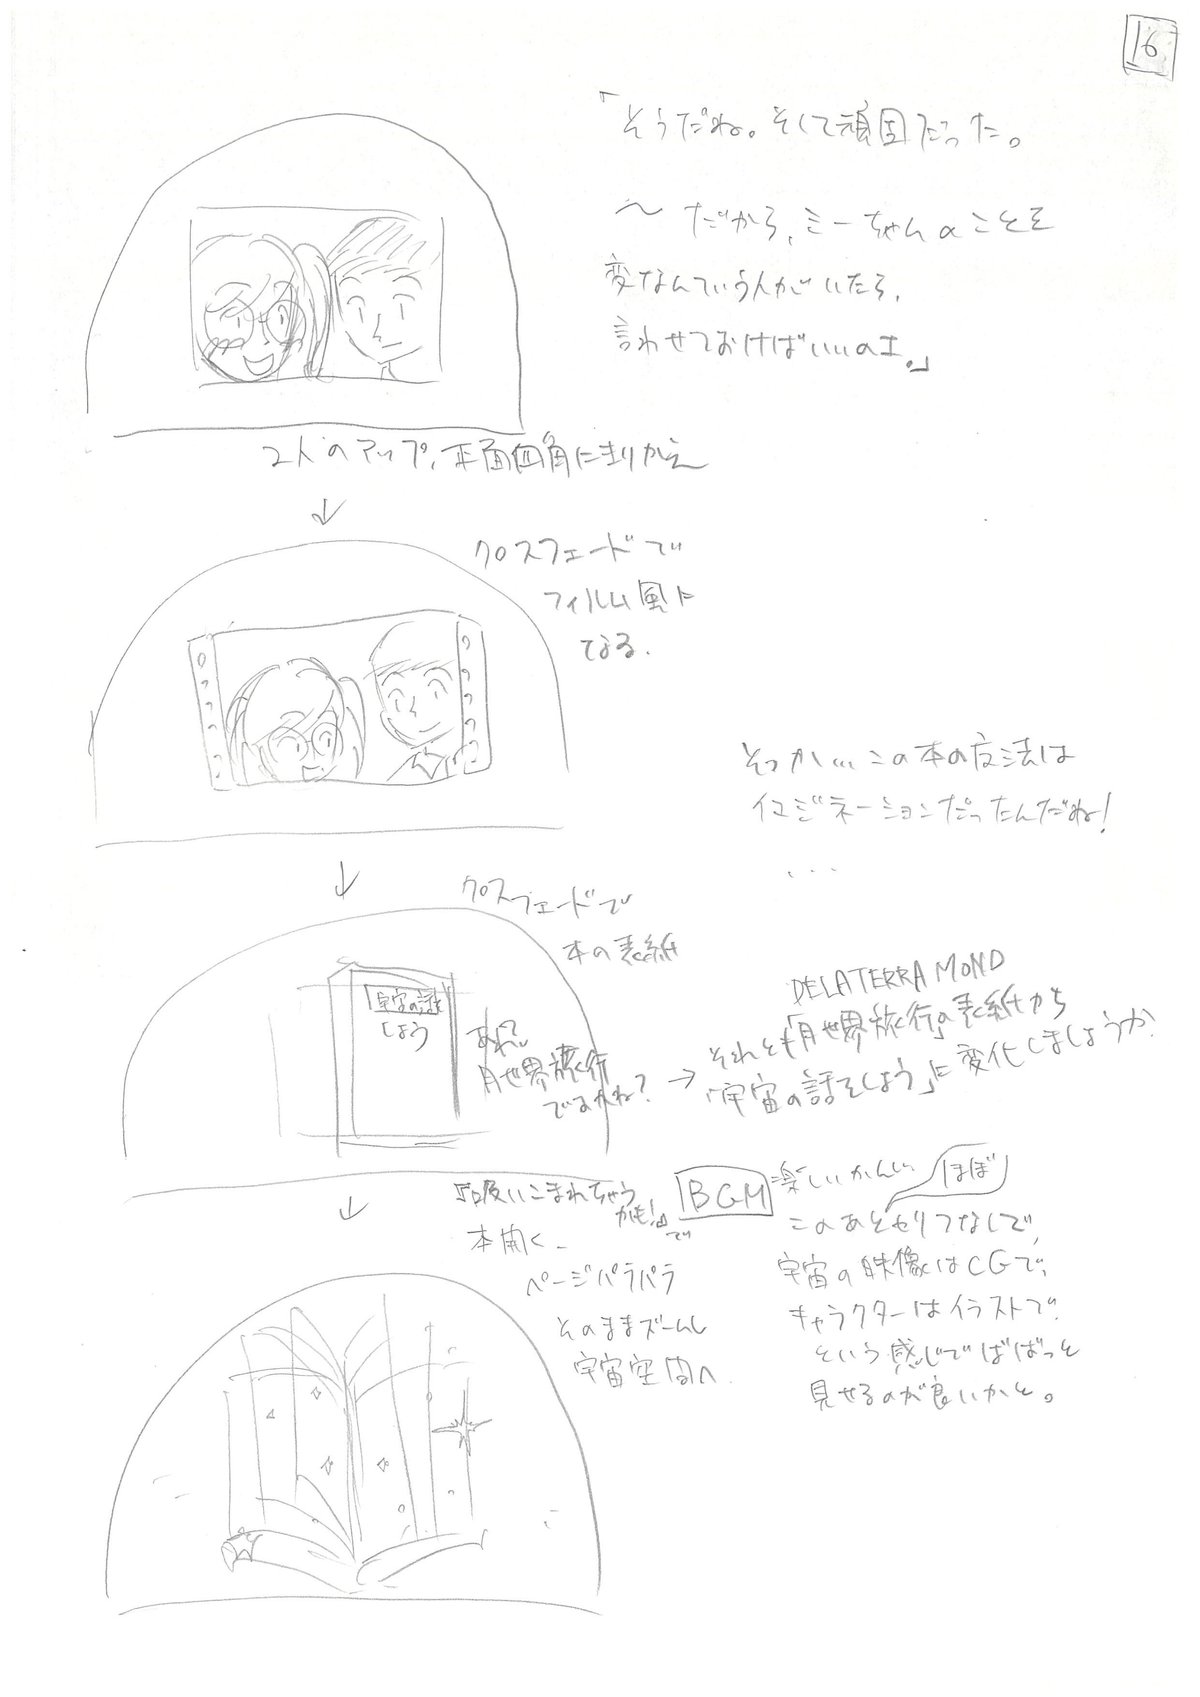 16
「そうだね。そして頑固だった。
〜だから、ミーちゃんのことを
変なんていう人がいたら、
言わせておけばいいのよ。」
2人のアップ、正面四角に切りかえ
↓
クロスフェードで
フィルム風に
なる.
そっか…この本の方法は
イマジネーションだったんだね!
...
↓
クロスフェードで
本の表紙
宇宙の話を
しよう
あれ、
月世界旅行
ですかね?
→
DELATERRA MOND
それとも「月世界旅行」の表紙から
「宇宙の話をしよう」に変化しましょうか?
↓
『吸いこまれちゃう
かも!』で
本開く、
ページパラパラ
そのままズームし
宇宙空間へ
BGM 楽しいかんじ
ほぼ
このあとセリフなしで、
宇宙の映像はCGで、
キャラクターはイラストで、
という感じでばばっと
見せるのが良いかと。